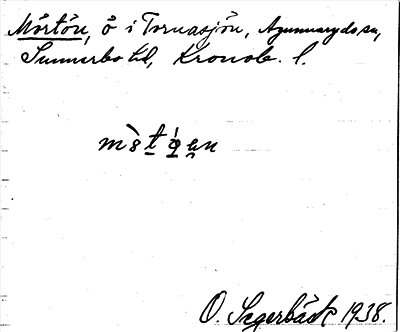 Mörtön, ö i Tornasjön, Agunnaryds sn,
Sunnerbo hd, Kronob. l.
O. Segerbäck 1938.